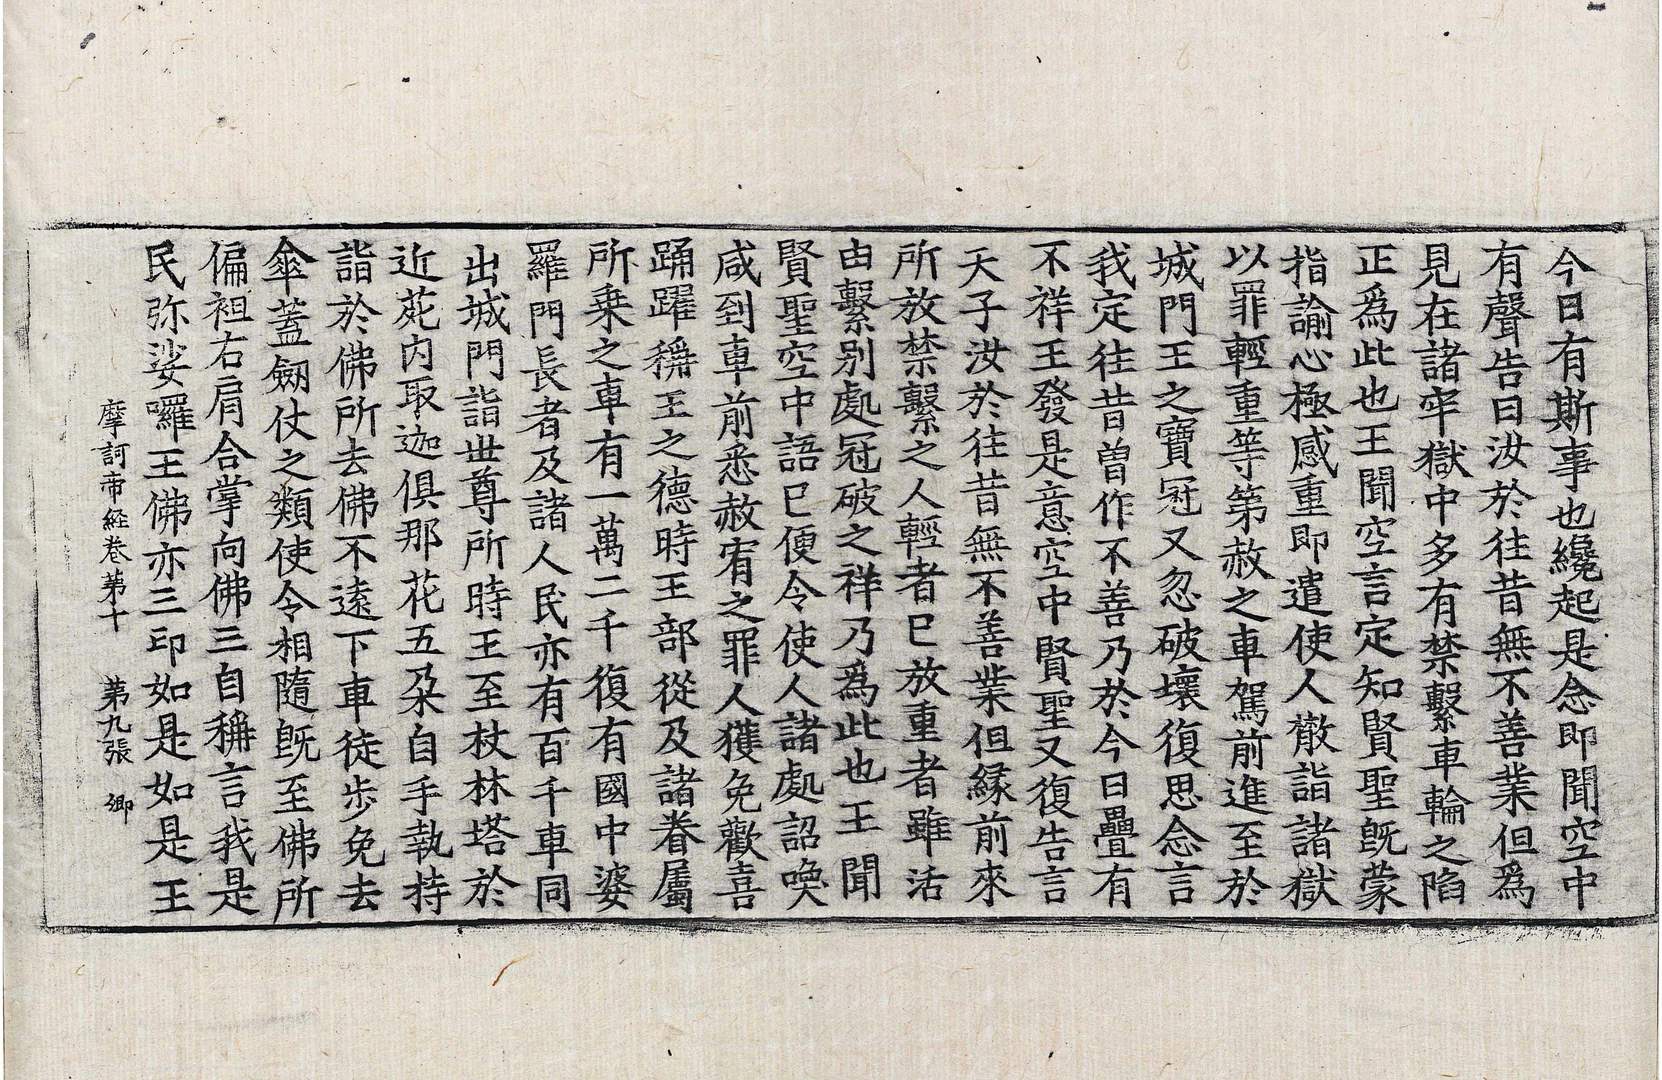 今日有斯事也纔起是念即聞空中
有聲告曰汝於往昔無不善業但爲
見在諸牢獄中多有禁繫車輪之陷
正爲此也王聞空言定知賢聖旣蒙
指諭心極感重即遣使人散詣諸獄
以罪輕重等第赦之車駕前進至於
城門王之寶冠又忽破壞復思念言
我定往昔曾作不善乃於今日疊有
不祥王發是意空中賢聖又復告言
天子汝於往昔無不善業但緣前來
所放禁繫之人輕者已放重者雖活
由繫别處冠破之祥乃爲此也王聞
賢聖空中語已便令使人諸處詔喚
咸到車前悉赦宥之罪人獲免歡喜
踊躍稱王之德時王部從及諸眷屬
所乘之車有一萬二千復有國中婆
羅門長者及諸人民亦有百千車同
出城門詣世尊所時王至杖林塔於
近苑内取迦俱那花五朶自手執持
詣於佛所去佛不遠下車徒步免去
傘蓋劒仗之類使令相隨旣至佛所
偏袒右肩合掌向佛三自稱言我是
民弥娑囉王佛亦三印如是如是王
摩訶帝経卷第十 第九張 卿